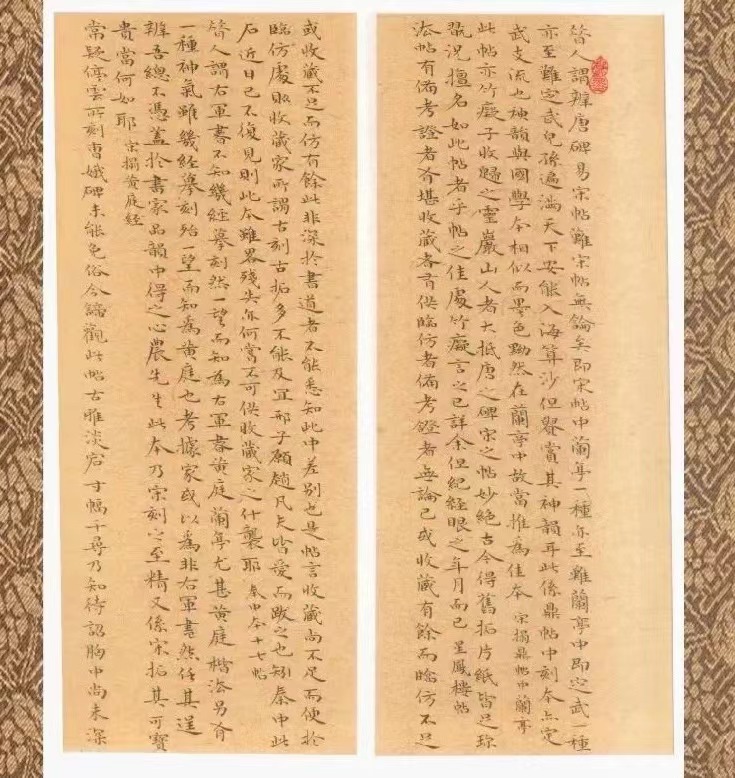 昔人謂辨唐碑易宋帖難宋帖無論矣即宋帖中蘭亭一種亦至難蘭亭中即定武一種
亦至難定武兒孫遍滿天下安能入海算沙但賞其神韻耳此係鼎帖中刻本亦定
武支流也神韻與國學本相似而墨色黝然在蘭亭中故當推為佳本 宋搨鼎帖中蘭亭
此帖亦竹癡子收歸之靈巖山人者大抵唐之碑宋之帖妙絕古今得舊拓片紙皆足珍
翫況擅名如此帖者乎帖之佳處竹癡言之已詳余但紀經眼之年月而已 星鳳樓帖
法帖有備考證者有堪收藏者有供臨仿者備考證者無論已或收藏有餘而臨仿不足
或收藏不足而仿有餘此非深於書道者不能悉知此中差別也是帖言收藏尚不足而便於
臨仿處敗收藏家所謂古刻古拓多不能及宜邢子願趙凡夫皆愛而跋之也矧秦中此
石近日已不復見則此本雖畧殘失亦何嘗不可供收藏家之什襲耶 秦中本十七帖
昔人謂右軍書不知幾經摹刻然一望而知為右軍書黃庭蘭亭尤甚黃庭楷法另有
一種神氣雖幾經摹刻殆一望而知為黃庭也考據家或以為非右軍書然任其逞
辨吾總不憑蓋於書家品韻中得之心農先生此本乃宋刻之至精又係宋拓其可寶
貴當何如耶 宋搨黃庭經
常疑停雲所刻曹娥碑未能免俗今諦觀此帖古雅淡宕寸幅千尋乃知待詔胸中尚未深